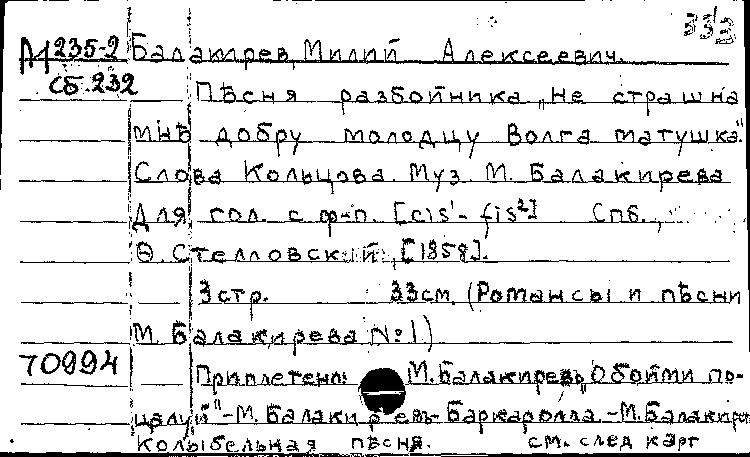 333
М 235-2 Балакирев, Милий Алексеевич.
Сб. 232
Пѣсня разбойника „Не страшна
мнѣ добру молодцу Волга матушка".
Слова Кольцова. Муз. М. Балакирева
Для гол. с ф-п. [cis¹-fis²] Спб.,
Ѳ. Стелловский, [1858].
3 стр. 33 см. (Романсы и пѣсни
М. Балакирева №1)
70994
Приплетено: М. Балакиревъ „Обойми по-
целуй" - М. Балакиревъ Баркаролла. - М. Балакирев
Колыбельная пѣсня. см. след карт